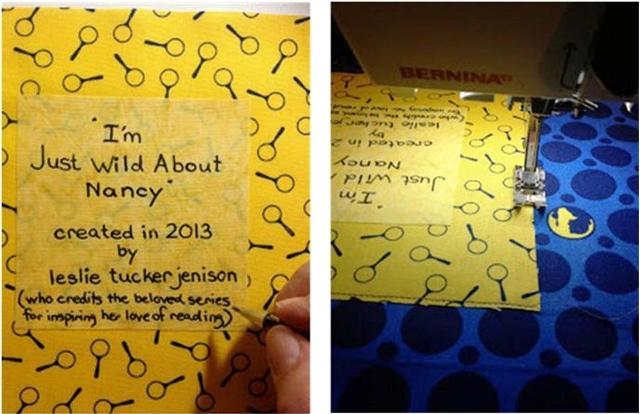 "I'm
Just Wild About
Nancy"
created in 2013
by
leslie tucker jenison
(who credits the beloved series
for inspiring her love of reading)
BERNINA
"I'm
Just Wild
Nancy
created in 2
by
leslie tucker je
(who credits the beloved
for inspiring her love of